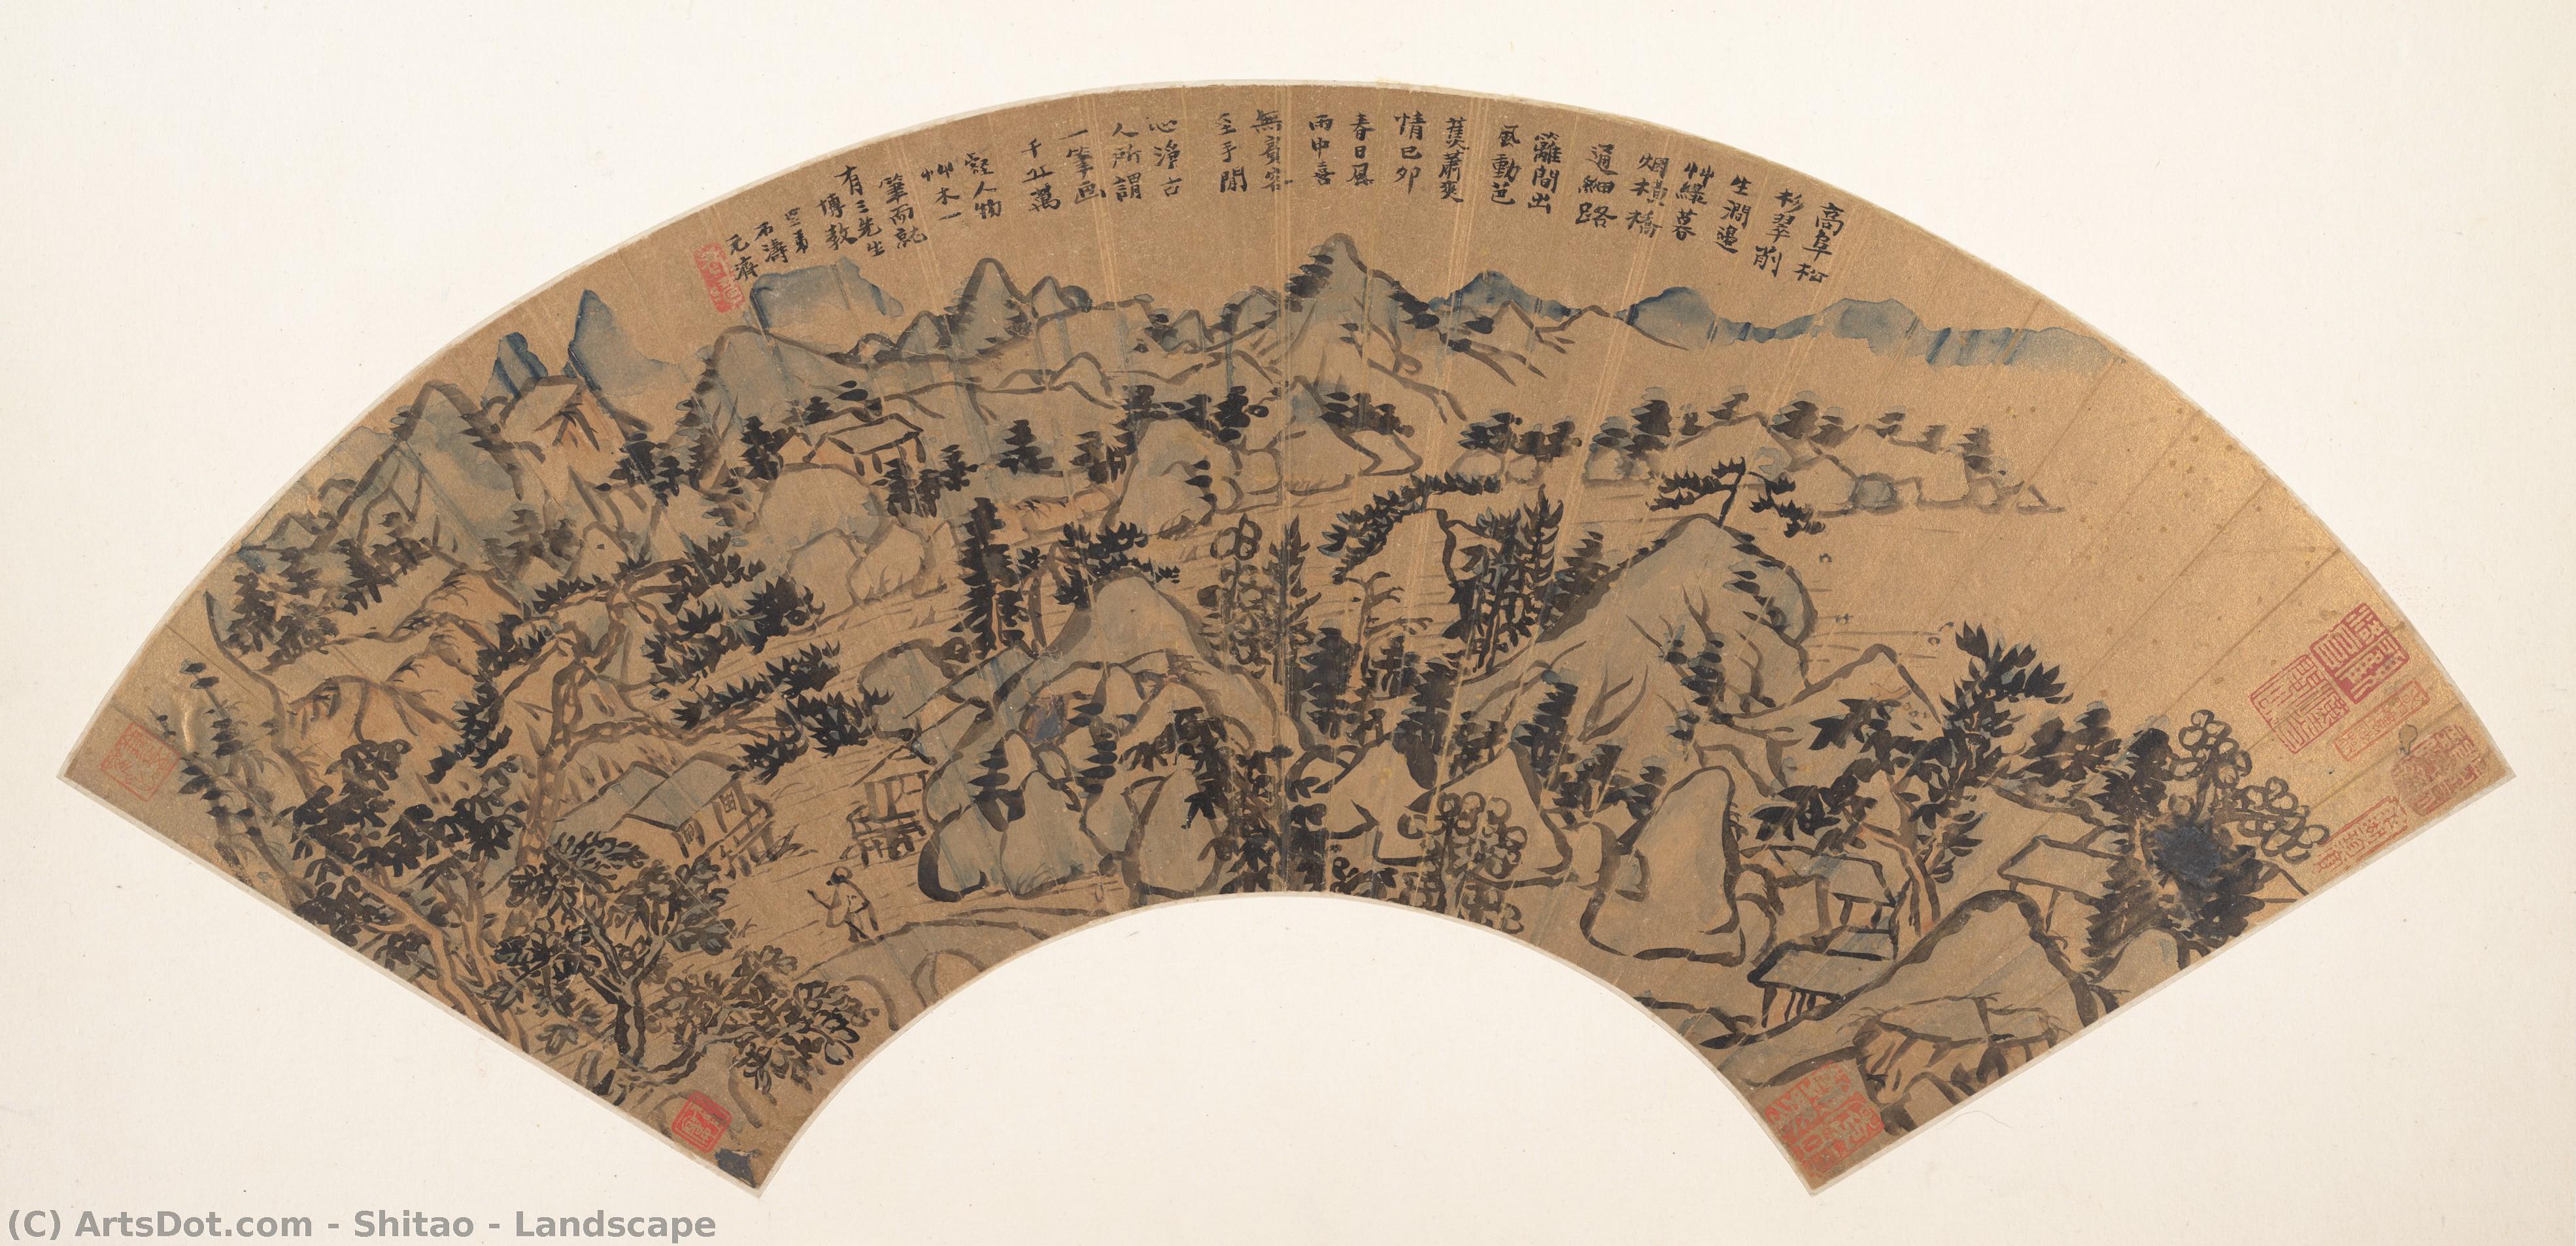 高阜松
杉翠前
生澗邊
艸綠暮
烟橫橋
通細路
籬間出
風動芭
蕉蕭爽
情己卯
春日風
雨中喜
無賓客
至手閒
心淨古
人所謂
一筆画
千丘萬
壑人物
艸木一
筆而就
有三先生
博教
弟
石濤
元濟
(C) ArtsDot.com - Shitao - Landscape